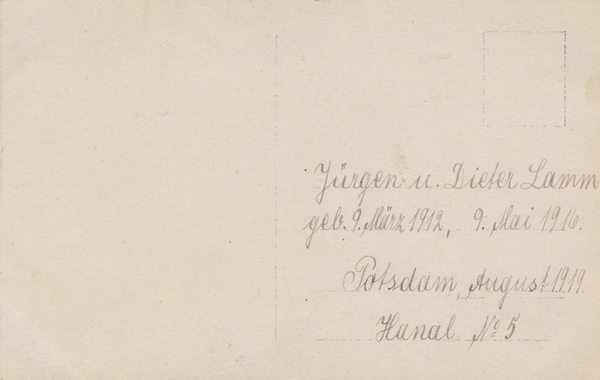 Jürgen u. Dieter Lamm
geb. 9. März 1912, 9. Mai 1916.
Potsdam, August 1919.
Kanal No 5